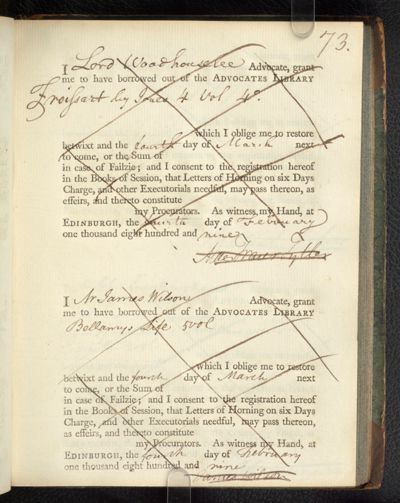 73.
I Lord Woodhouselee Advocate, grant
me to have borrowed out of the ADVOCATES LIBRARY
Froissart by Jones 4 Vol 4º.
which I oblige me to restore
betwixt and the fourth day of March next
to come, or the Sum of
in case of Failzie; and I consent to the registration hereof
in the Books of Session, that Letters of Horning on six Days
Charge, and other Executorials needful, may pass thereon, as
effeirs, and thereto constitute
my Procurators. As witness my Hand, at
EDINBURGH, the fourth day of February
one thousand eight hundred and nine
I Mr James Wilson Advocate, grant
me to have borrowed out of the ADVOCATES LIBRARY
Bellamys Life 5 vol
which I oblige me to restore
betwixt and the fourth day of March next
to come, or the Sum of
in case of Failzie; and I consent to the registration hereof
in the Books of Session, that Letters of Horning on six Days
Charge, and other Executorials needful, may pass thereon,
as effeirs, and thereto constitute
my Procurators. As witness my Hand, at
EDINBURGH, the fourth day of February
one thousand eight hundred and nine
James Wilson